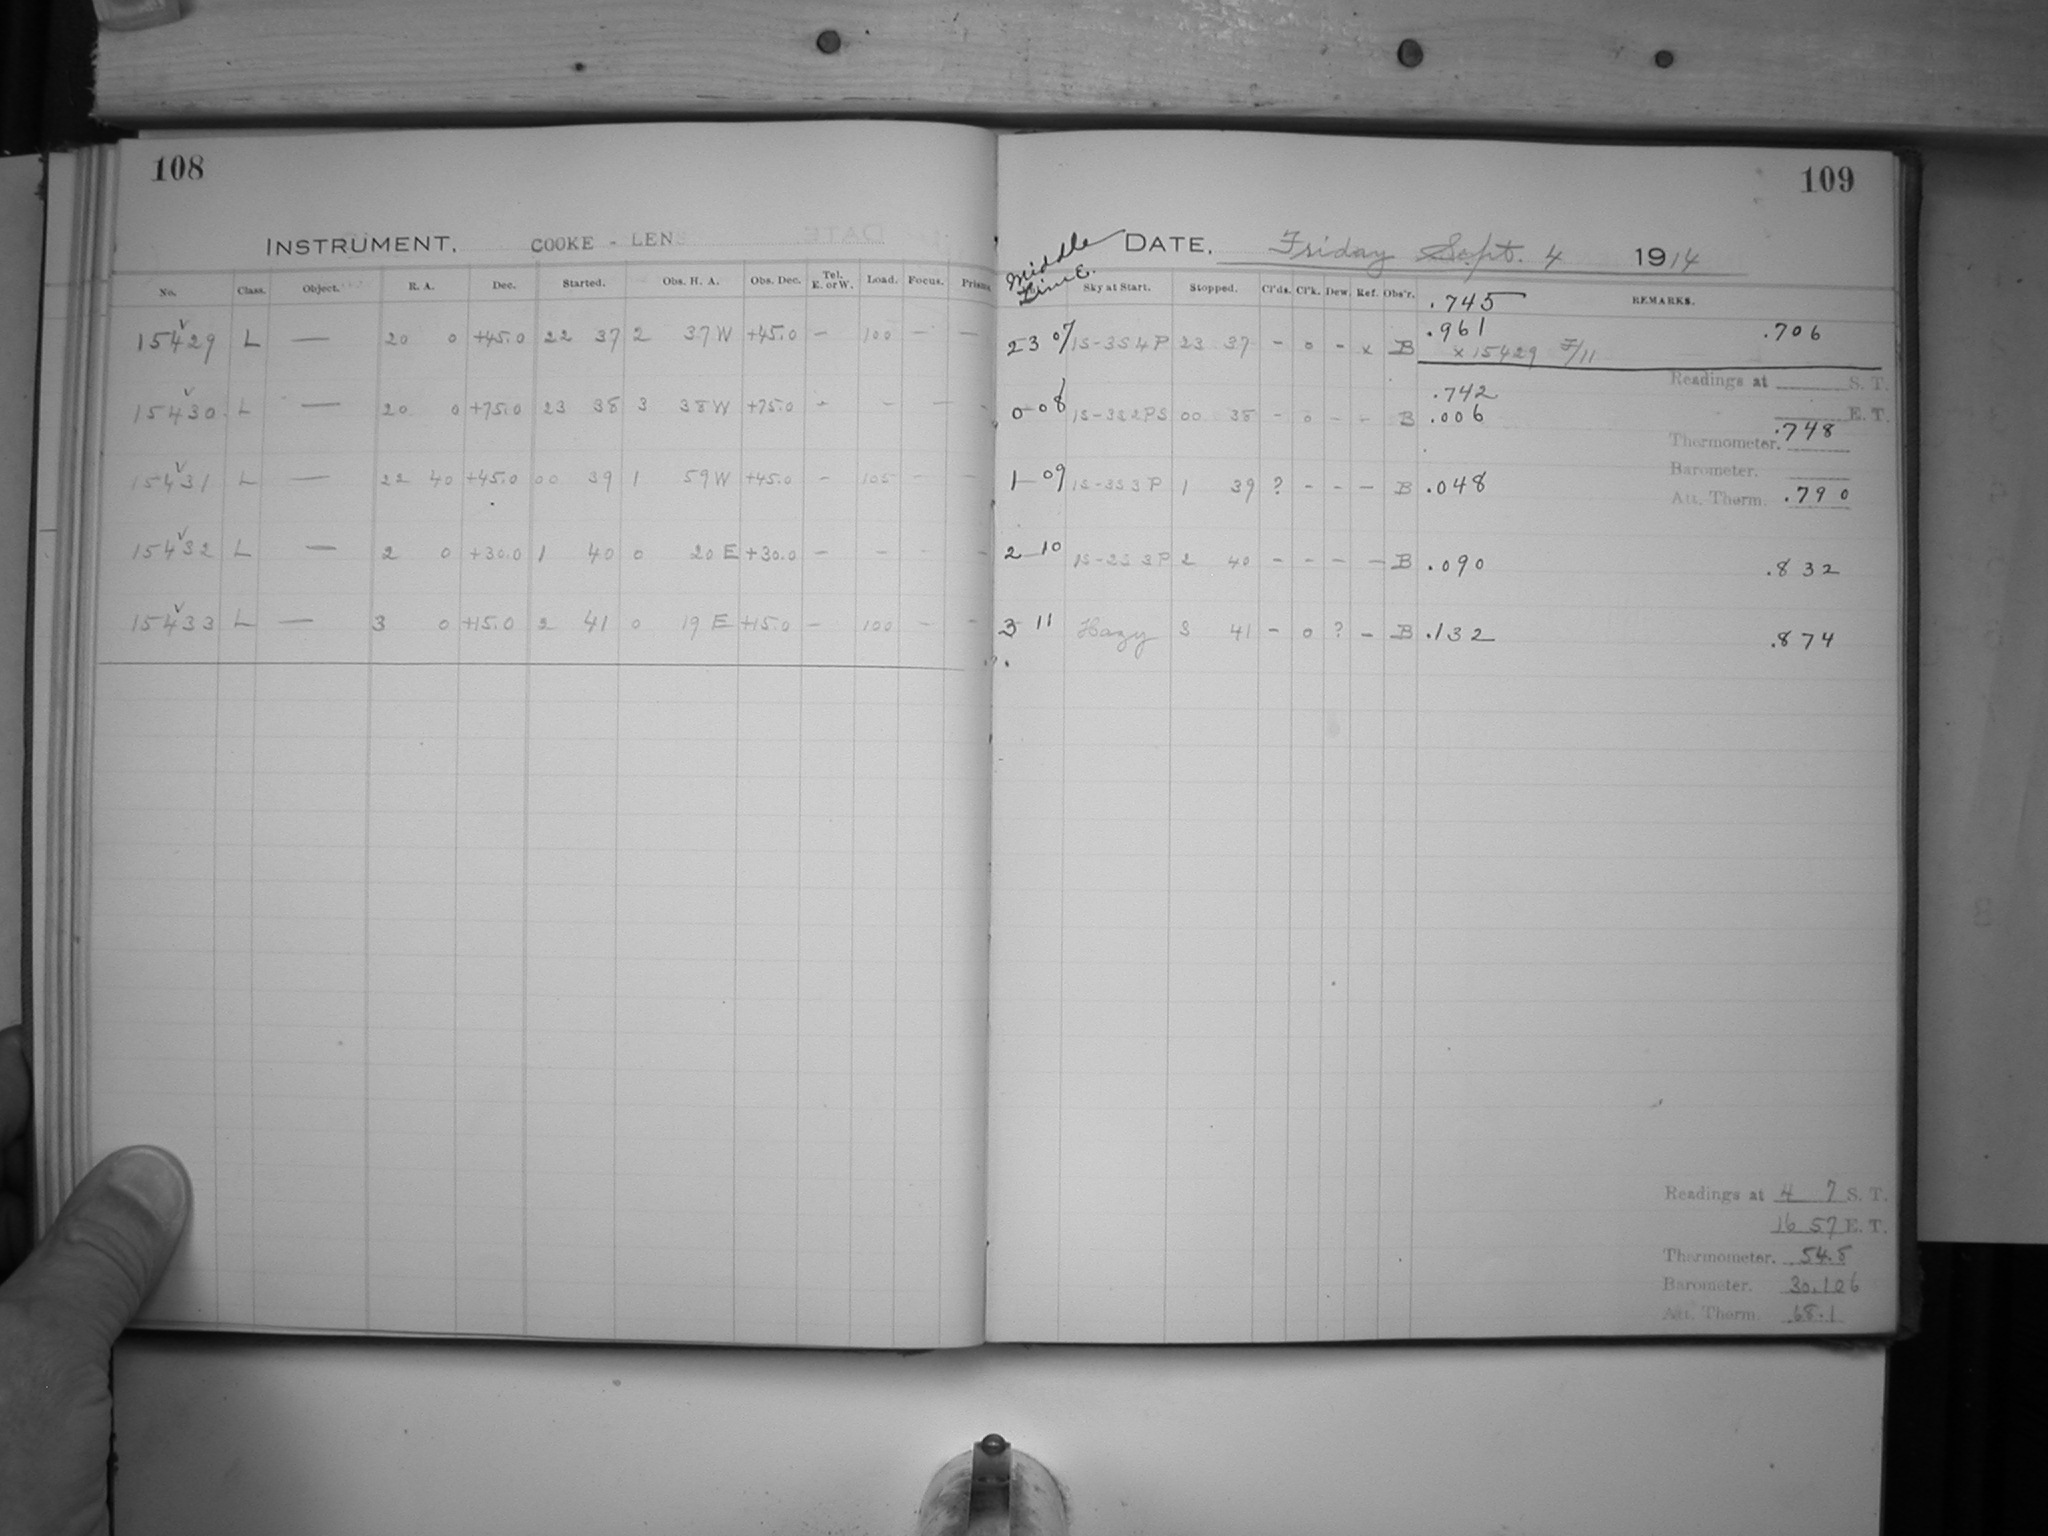 108
INSTRUMENT. COOKE - LENS
No. Class. Object. R. A. Dec. Started. Obs. H. A. Obs. Dec. Tel. E. or W. Load. Focus. Prisms
15429 L — 20 0 +45.0 22 37 2 37 W +45.0 — 100 — —
15430 L — 20 0 +75.0 23 38 3 38 W +75.0 - - — -
15431 L — 22 40 +45.0 00 39 1 59 W +45.0 - 105 - -
15432 L — 2 0 +30.0 1 40 0 20 E +30.0 — - - -
15433 L — 3 0 +15.0 2 41 0 19 E +15.0 — 100 - -
109
Middle Time. DATE. Friday Sept. 4 1914
Sky at Start. Stopped. Cl'ds. Cl'k. Dew. Ref. Obs'r. REMARKS.
.745
23 07 1S-3S4P 23 37 - 0 - x B .961 .706
x 15429 F/11
Readings at S. T.
.742
0 08 1S-3S2PS 00 38 - 0 - - B .006 E. T.
Thermometer. .748
Barometer.
1 09 1S-3S3P 1 39 ? - - — B .048 Att. Therm. .790
2 10 1S-2S3P 2 40 - - — — B .090 .832
3 11 Hazy 3 41 - 0 ? - B .132 .874
Readings at 4 7 S. T.
16 57 E. T.
Thermometer. 54.8
Barometer. 30.106
Att. Therm. 68.1